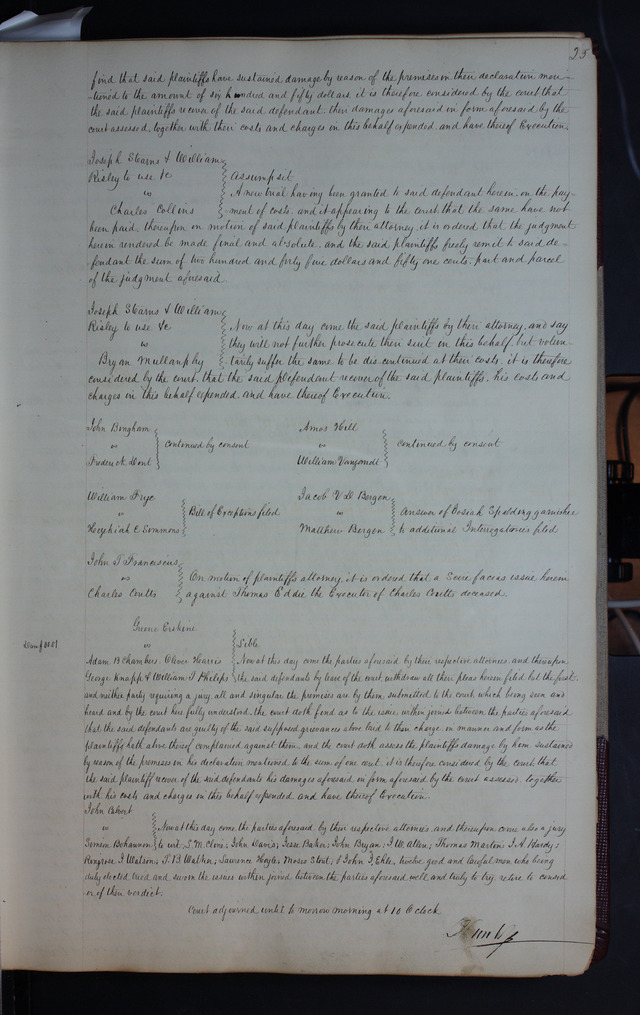 25
find that said plaintiffs have sustained damage by reason of the premises in their declaration men-
-tioned to the amount of six hundred and fifty dollars it is therefore considered by the court that
the said plaintiffs recover of the said defendant, their damages aforesaid in form aforesaid by the
court assessed, together with their costs and charges in this behalf expended, and have thereof Execution.
Joseph Stearns & William
Risley to use &c Assumpsit
vs A new trial having been granted to said defendant herein, on the pay-
Charles Collins -ment of costs, and it appearing to the court that the same have not
been paid, thereupon on motion of said plaintiffs by their attorney, it is ordered that the judgment
herein rendered be made final and absolute, and the said plaintiffs freely remit to said de-
fendant the sum of two hundred and forty five dollars and fifty one cents, part and parcel
of the judgment aforesaid.
Joseph Stearns & William
Risley to use &c Now at this day come the said plaintiffs by their attorney, and say
vs they will not further prosecute their suit in this behalf, but volun-
Bryan Mullanphy tarily suffer the same to be discontinued at their costs, it is therefore
considered by the court, that the said defendant recover of the said plaintiffs, his costs and
charges in this behalf expended, and have thereof Execution.
John Bingham Amos Hill
vs continued by consent vs continued by consent
Frederick Dent William Vanzandt
William Frye Jacob V D Bergen
vs Bill of Exceptions filed vs Answer of Josiah Spalding garnishee
Hezekiah C Simmons Matthew Bergen to additional Interrogatories filed
John T Franciscus
vs On motion of plaintiffs attorney, it is ordered that a Scire facias issue herein
Charles Coutts against Thomas Eddie the Executor of Charles Coutts deceased.
Greene Erskine
Damg $0.01 vs Libel
Adam B Chambers Oliver Harris Now at this day come the parties aforesaid by their respective attornies, and thereupon
George Knapp & William J Phelps the said defendants by leave of the court withdraw all their pleas herein filed but the first
and neither party requiring a jury, all and singular the premises are by them submitted to the court, which being seen and
heard and by the court here fully understood, the court doth find as to the issue within joined between the parties aforesaid
that the said defendants are guilty of the said supposed grievances above laid to their charge, in manner and form as the
plaintiff hath above thereof complained against them, and the court doth assess the plaintiffs damage by him sustained
by reason of the premises in his declaration mentioned, to the sum of one cent, it is therefore considered by the court, that
the said plaintiff recover of the said defendants his damages aforesaid in form aforesaid by the court assessed, together
with his costs and charges in this behalf expended and have thereof Execution.
John Calvert
vs Now at this day come the parties aforesaid, by their respective attornies, and thereupon come also a jury
Bohannon to wit, John Davis, Jesse Baker, John Bryan, J W Allen, Thomas Martin, J A Hardy,
J Watson, J B Walker, Lawrence Hayle, Moses Stout, & John J Ehler, twelve good and lawful men who being
duly elected, tried and sworn the issues within joined between the parties aforesaid well and truly to try, retire to consid
er of their verdict.
Court adjourned until to morrow morning at 10 O'clock